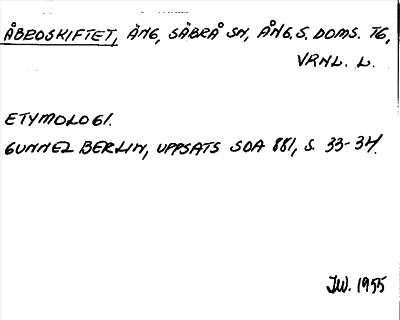 ÅBEDSKIFTET, ÄNG, SÄBRÅ SN, ÅNG. S. DOMS. TG,
VRNL. L.
ETYMOLOGI.
GUNNEL BERLIN, UPPSATS SOA 881, S. 33-34.
JW. 1955